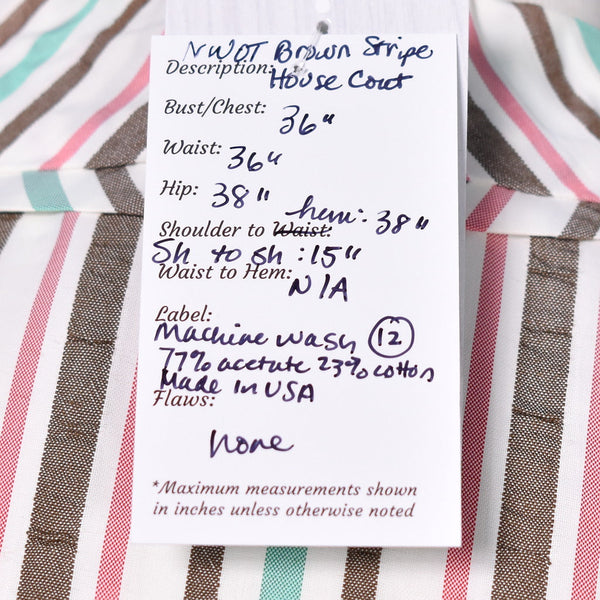 NWOT Brown Stripe
Description: House Coat
Bust/Chest: 36"
Waist: 36"
Hip: 38"
Shoulder to Waist: hem: 38"
Sh. to sh: 15"
Waist to Hem: N/A
Label:
Machine Wash 12
77% acetate 23% cotton
Made in USA
Flaws:
none
*Maximum measurements shown
in inches unless otherwise noted